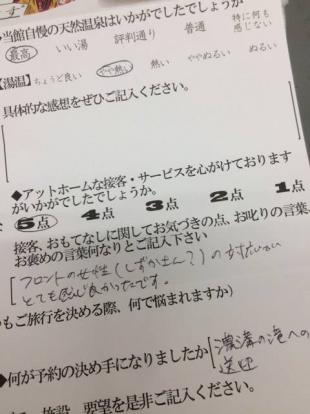 す
◆当館自慢の天然温泉はいかがでしたでしょうか
最高 いい湯 評判通り 普通 特に何も感じない
【湯温】ちょうど良い やや熱い 熱い ややぬるい ぬるい
具体的な感想をぜひご記入ください。
◆アットホームな接客・サービスを心がけております
がいかがでしたでしょうか。
5点 4点 3点 2点 1点
接客、おもてなしに関してお気づきの点、お叱りの言葉、
お褒めの言葉何なりとご記入下さい
フロントの女性(しずかさん?)の
とても感じ良かったです。
もご旅行を決める際、何で悩まれますか)
◆何が予約の決め手になりましたか
の港への
送迎
施設 要望を是非ご記入ください。